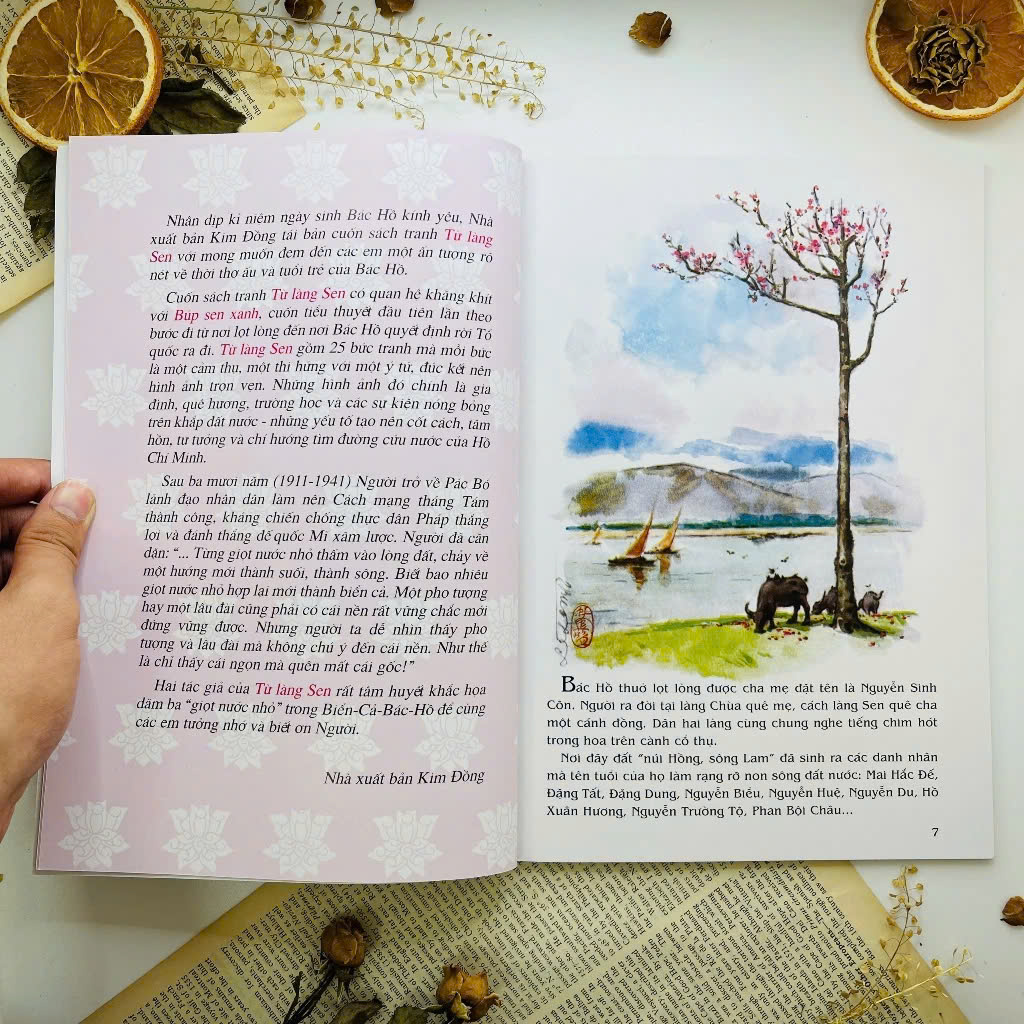 Nhân dịp kỉ niệm ngày sinh Bác Hồ kính yêu, Nhà
xuất bản Kim Đồng tái bản cuốn sách tranh Từ làng
Sen với mong muốn đem đến các em một ấn tượng rõ
nét về thời thơ ấu và tuổi trẻ của Bác Hồ.
Cuốn sách tranh Từ làng Sen có quan hệ khăng khít
với Búp sen xanh, cuốn tiểu thuyết đầu tiên lần theo
bước đi từ nơi lọt lòng đến nơi Bác Hồ quyết định rời Tổ
quốc ra đi. Từ làng Sen gồm 25 bức tranh mà mỗi bức
là một cảm thụ, một thi hứng với một ý tứ, đúc kết nên
hình ảnh trọn vẹn. Những hình ảnh đó chính là gia
đình, quê hương, trường học và các sự kiện nóng bỏng
trên khắp đất nước - những yếu tố tạo nên cốt cách, tâm
hồn, tư tưởng và chí hướng tìm đường cứu nước của Hồ
Chí Minh.
Sau ba mươi năm (1911-1941) Người trở về Pác Bó
lãnh đạo nhân dân làm nên Cách mạng tháng Tám
thành công, kháng chiến chống thực dân Pháp thắng
lợi và đánh thắng đế quốc Mĩ xâm lược. Người đã căn
dặn: “... Từng giọt nước nhỏ thấm vào lòng đất, chảy về
một hướng mới thành suối, thành sông. Biết bao nhiêu
giọt nước nhỏ hợp lại mới thành biển cả. Một pho tượng
hay một lâu đài cũng phải có cái nền rất vững chắc mới
đứng vững được. Nhưng người ta dễ nhìn thấy pho
tượng và lâu đài mà không chú ý đến cái nền. Như thế
là chỉ thấy cái ngọn mà quên mất cái gốc!”
Hai tác giả của Từ làng Sen rất tâm huyết khắc họa
dăm ba “giọt nước nhỏ” trong Biển-Cả-Bác-Hồ để cùng
các em tưởng nhớ và biết ơn Người.
Nhà xuất bản Kim Đồng
Bác Hồ thuở lọt lòng được cha mẹ đặt tên là Nguyễn Sinh
Côn. Người ra đời tại làng Chùa quê mẹ, cách làng Sen quê cha
một cánh đồng. Dân hai làng cùng chung nghe tiếng chim hót
trong hoa trên cành cổ thụ.
Nơi đây đất “núi Hồng, sông Lam” đã sinh ra các danh nhân
mà tên tuổi của họ làm rạng rỡ non sông đất nước: Mai Hắc Đế,
Đặng Tất, Đặng Dung, Nguyễn Biểu, Nguyễn Huệ, Nguyễn Du, Hồ
Xuân Hương, Nguyễn Trường Tộ, Phan Bội Châu...
7